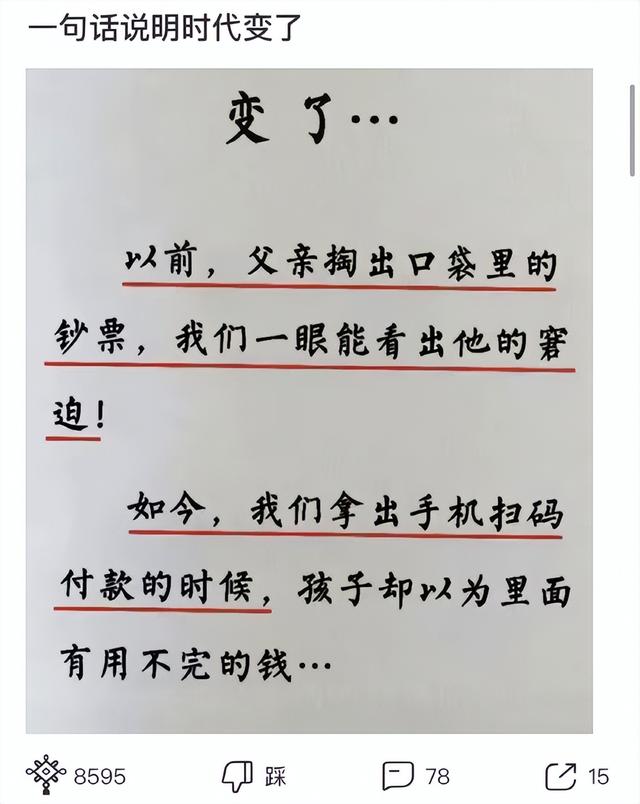 一句话说明时代变了
变了…
以前，父亲掏出口袋里的
钞票，我们一眼能看出他的窘
迫！
如今，我们拿出手机扫码
付款的时候，孩子却以为里面
有用不完的钱…
8595 踩 78 15